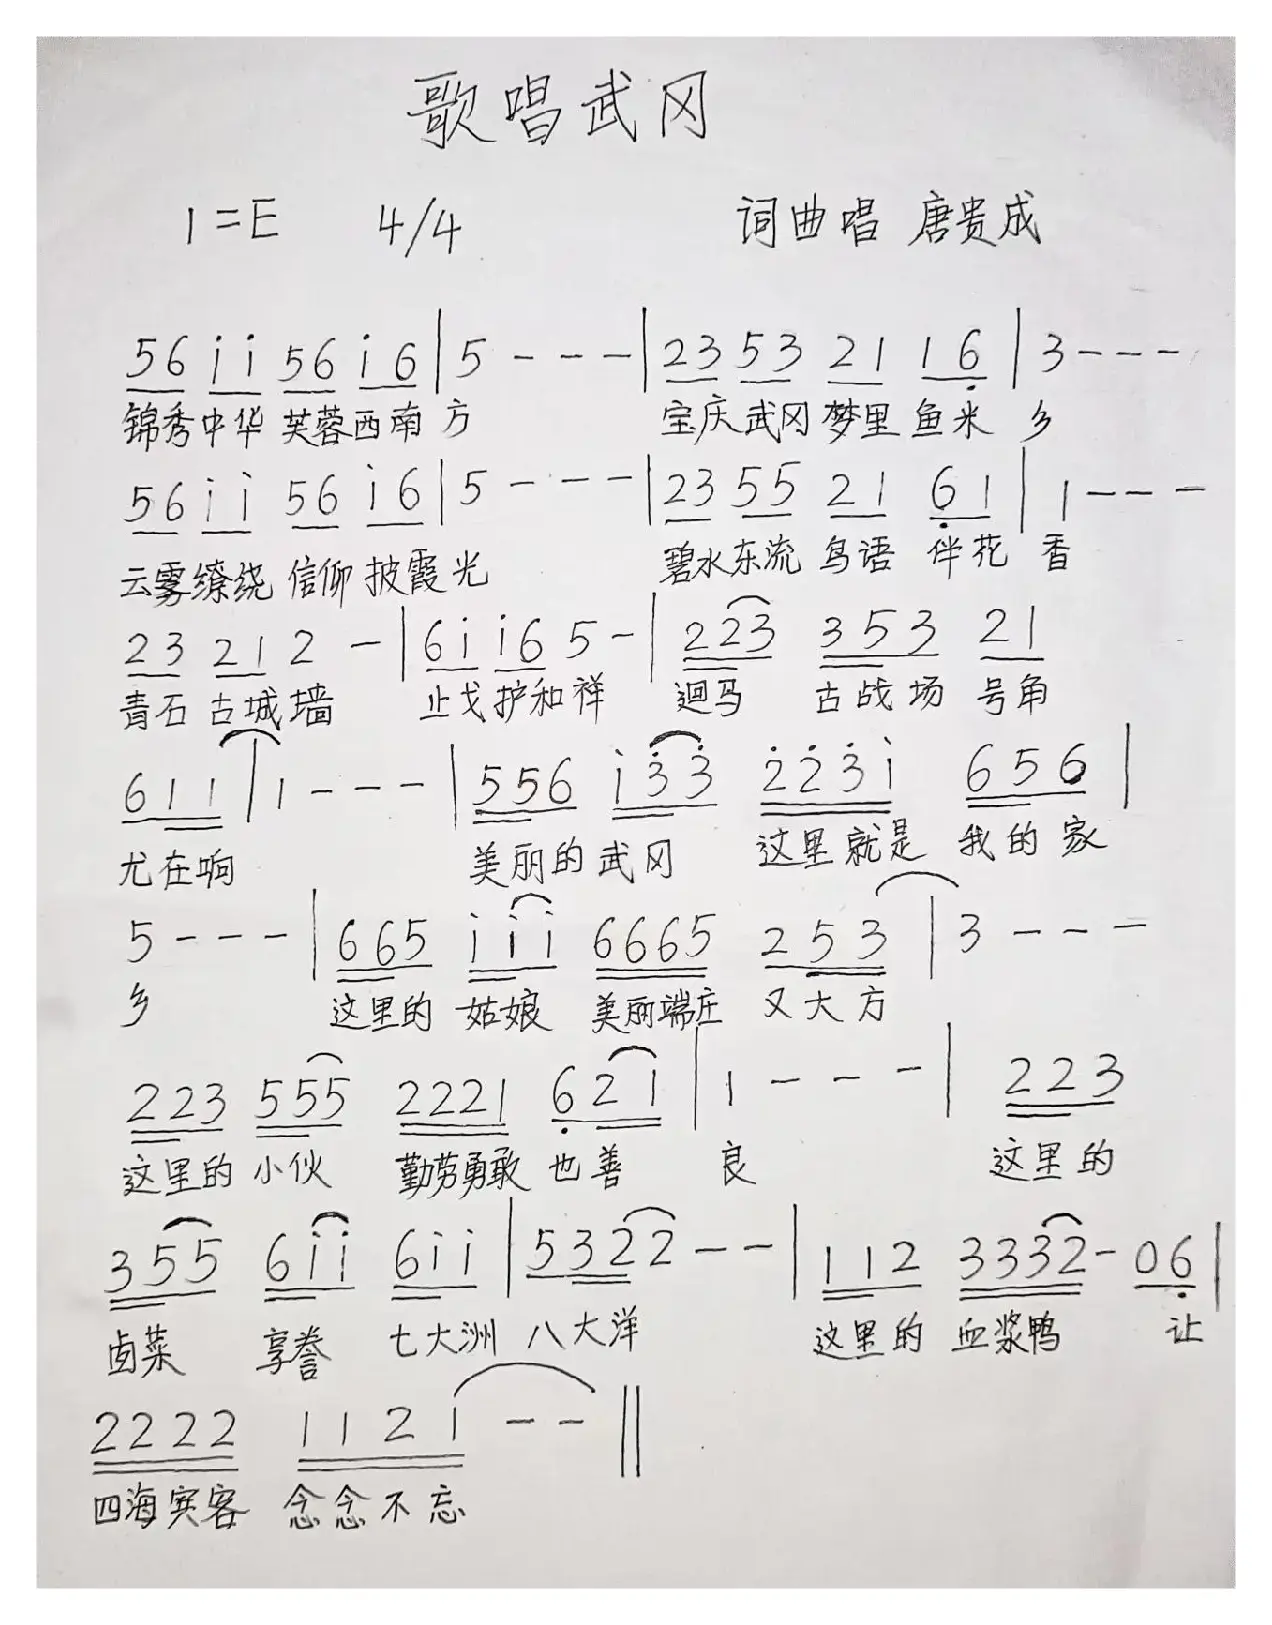 歌唱武冈
1=E 4/4 词曲唱 唐贵成
56 i̇i̇ 56 i̇6 | 5 - - - | 23 53 21 16̣ | 3 - - -
锦秀中华 芙蓉西南方 宝庆武冈 梦里鱼米乡
56 i̇i̇ 56 i̇6 | 5 - - - | 23 55 21 6̣1 | 1 - - -
云雾缭绕 信仰披霞光 碧水东流 鸟语 伴花 香
23 21 2 - | 6i̇ i̇6 5 - | 223 353 21
青石 古城墙 止戈护和祥 迴马 古战场 号角
611 | 1 - - - | 556 i̇3̇3̇ 2̇2̇3̇i̇ 656 |
尤在响 美丽的武冈 这里就是 我的家
5 - - - | 665 i̇i̇i̇ 6665 253 | 3 - - -
乡 这里的 姑娘 美丽端庄 又大方
223 555 2221 6̣21 | 1 - - - | 223
这里的 小伙 勤劳勇敢 也善 良 这里的
355 6i̇i̇ 6i̇i̇ | 5322 - - | 112 3332 - 06̣ |
卤菜 享誉 七大洲 八大洋 这里的 血浆鸭 让
2222 1121 - - ‖
四海宾客 念念不忘